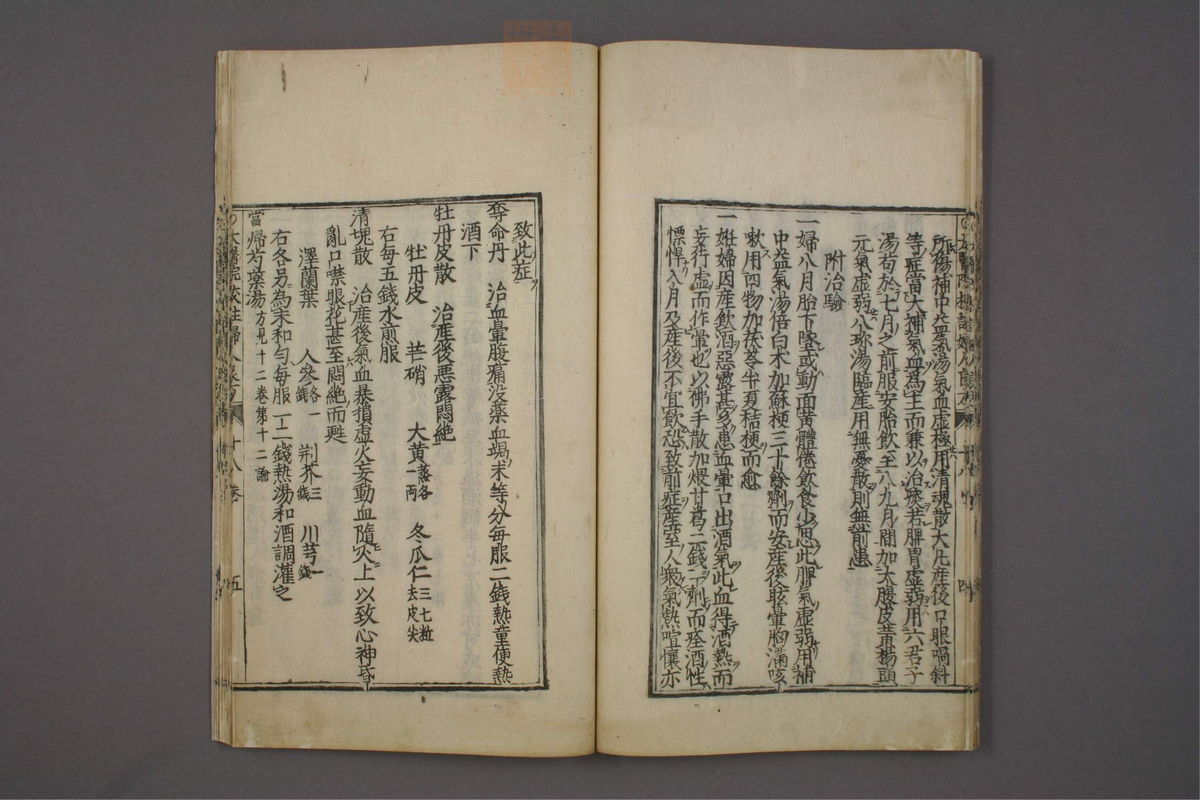 所傷補中益氣湯氣血虛極用清魂散大凡產後口眼喎斜
等症當大補氣血爲主而兼以治痰若脾胃虛弱用六君子
湯荀於七月之前服安胎飲至八九月間加大腹皮黃楊頭
元氣虛弱八珍湯臨產用無憂散則無前患
附治驗
一婦八月胎下墜或動面黃體倦飲食少思此脾氣虛弱用補
中益氣湯倍白术加蘇梗三十餘劑而安產後眩暈胸滿咳
嗽用四物加茯苓半夏桔梗而愈
一姙婦因產飲酒惡露甚多患血暈口出酒氣此血得酒熱而
妄行虛而作暈也以佛手散加煨甘葛二錢一劑而痊酒性
慓悍入月及產後不宜飲恐致前症產室人衆氣熱喧懷亦
致此症
奪命丹 治血暈腹痛没藥血竭末等分每服二錢熱童便熱
酒下
牡丹皮散 治產後惡露悶絶
牡丹皮 芒硝 大黃蒸各一兩 冬瓜仁三七粒去皮尖
右每五錢水煎服
清塊散 治產後氣血暴損虛火妄動血隨火上以致心神昏
亂口噤眼花甚至悶絶而甦
澤蘭葉 人參各一錢 荆芥三錢 川芎一錢
右各另爲末和匀每服一二錢熱湯和酒調灌之
當歸芍藥湯方見十二卷第十二論
太醫院校註婦人良方 十八卷 五